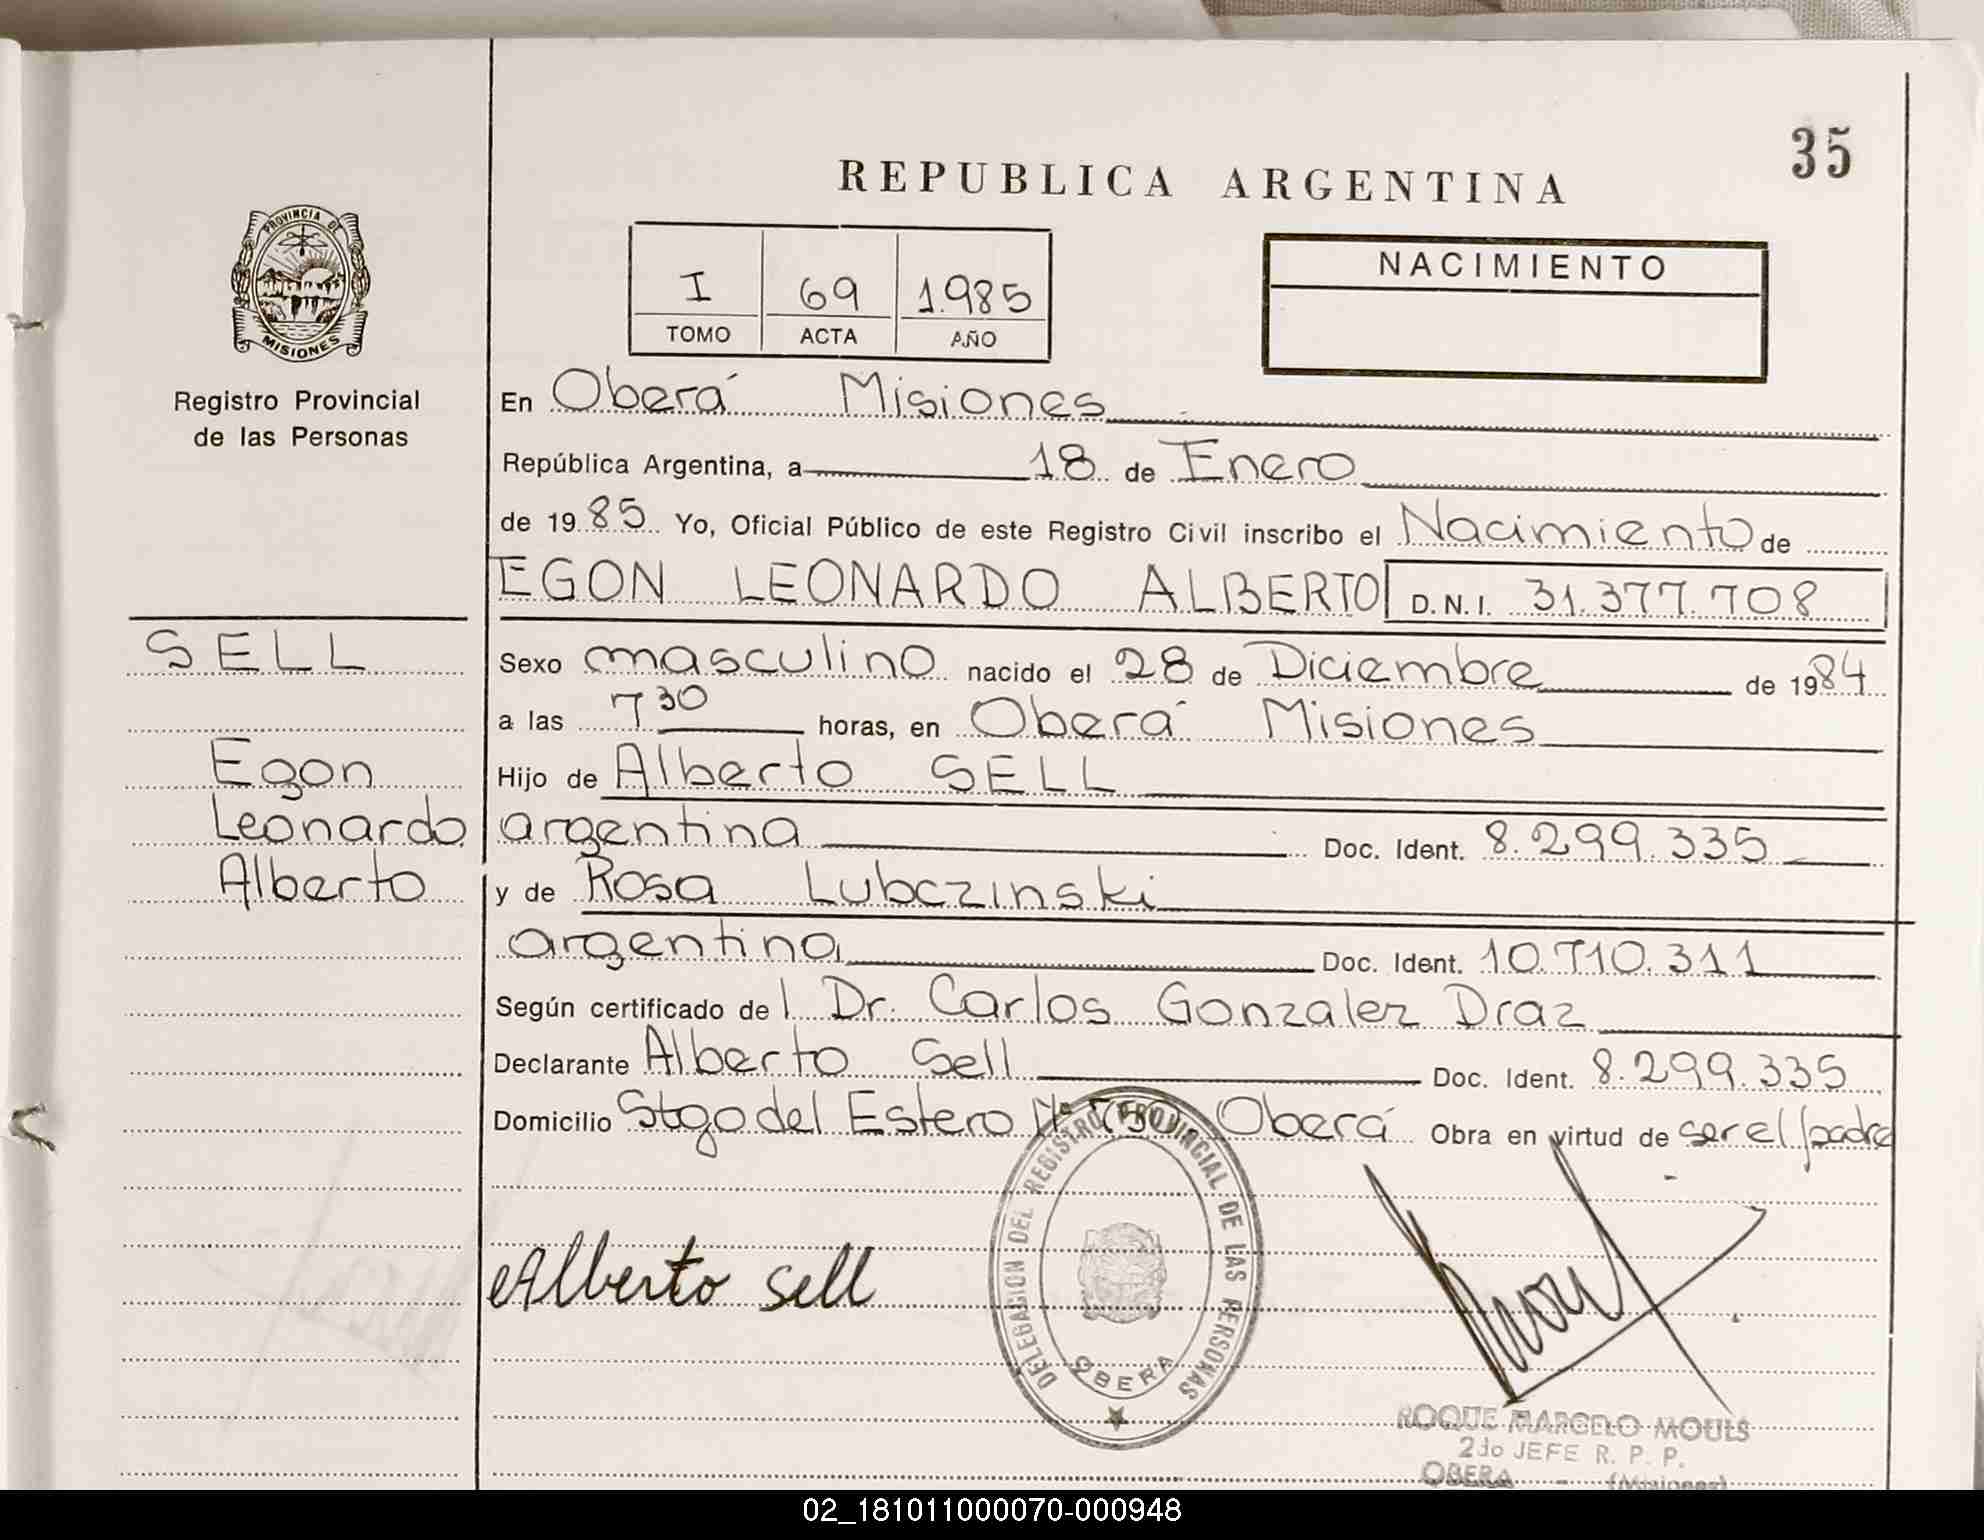 35
REPUBLICA ARGENTINA
PROVINCIA DE
MISIONES
Registro Provincial
de las Personas
I 69 1.985
TOMO ACTA AÑO
NACIMIENTO
En Oberá Misiones
República Argentina, a 18 de Enero
de 1985 Yo, Oficial Público de este Registro Civil inscribo el Nacimiento de
EGON LEONARDO ALBERTO D.N.I. 31.377.708
SELL
Sexo masculino nacido el 28 de Diciembre de 1984
a las 7 30 horas, en Oberá Misiones
Egon
Hijo de Alberto SELL
Leonardo
argentina Doc. Ident. 8.299.335
Alberto
y de Rosa Lubczinski
argentina Doc. Ident. 10.710.311
Según certificado de l Dr. Carlos Gonzalez Draz
Declarante Alberto Sell Doc. Ident. 8.299.335
Domicilio Stgo del Estero Nº Oberá Obra en virtud de ser el padre
Alberto Sell
DELEGACION DEL REGISTRO PROVINCIAL DE LAS PERSONAS
OBERA
ROQUE MARCELO MOULS
2do JEFE R. P. P.
OBERA - (Misiones)
02_181011000070-000948